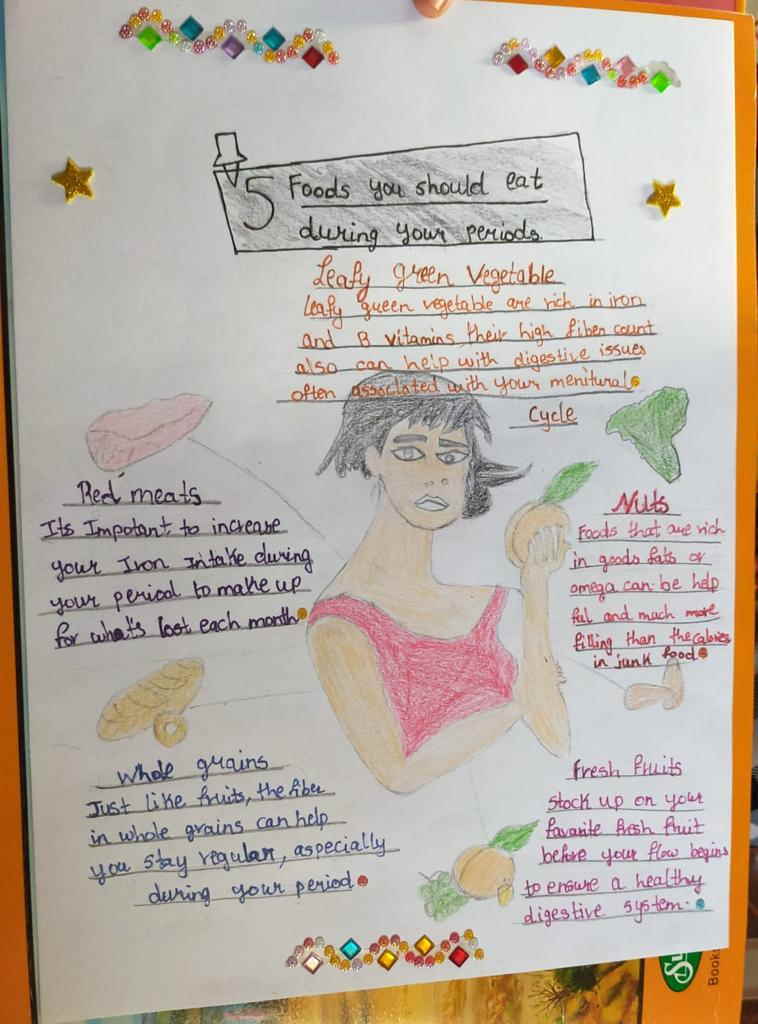 5 Foods you should eat
during your periods.
Leafy green Vegetable
leafy green vegetable are rich in iron
and B vitamins, their high fiber count
also can help with digestive issues
often associated with your menitural
Cycle
Red meats
Its Impotant to increase
your Iron Intake during
your period to make up
for what's lost each month
Nuts
Foods that are rich
in goods fats or
omega can be help
ful and much more
filling than the calories
in junk food
Whole grains
Just like fruits, the fiber
in whole grains can help
you stay regular, aspecially
during your period
Fresh fruits
Stock up on your
favarite fresh fruit
before your flow begins
to ensure a healthy
digestive system.
Su
Book